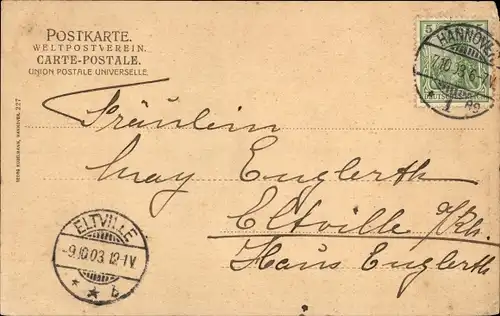 POSTKARTE.
WELTPOSTVEREIN.
CARTE-POSTALE.
UNION POSTALE UNIVERSELLE.
5 5
HANNOVER
7.10.03.6-7.V.
* 1 *
Fräulein
May Englerth
Eltville a/Rh.
Haus Englerth
ELTVILLE
-9.10.03.12-1V.
* * b